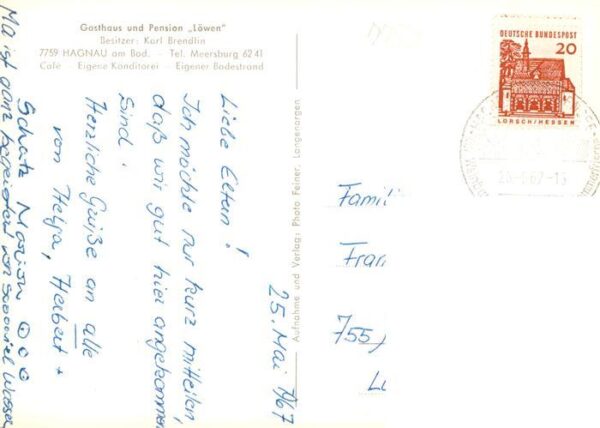 Gasthaus und Pension „Löwen“
Besitzer: Karl Brendlin
7759 HAGNAU am Bod. - Tel. Meersburg 62 41
Café - Eigene Konditorei - Eigener Badestrand
DEUTSCHE BUNDESPOST
20
LORSCH/HESSEN
67-1
25. Mai 1967
Liebe Eltern!
Ich möchte nur kurz mitteilen,
daß wir gut hier angekommen
sind.
Herzliche Grüße an alle
von Helga, Herbert +
Schatz Marion
Ma ist ganz begeistert von soooviel Wasser
Aufnahme und Verlag: Photo Feiner, Langenargen
Famil
Fran
755